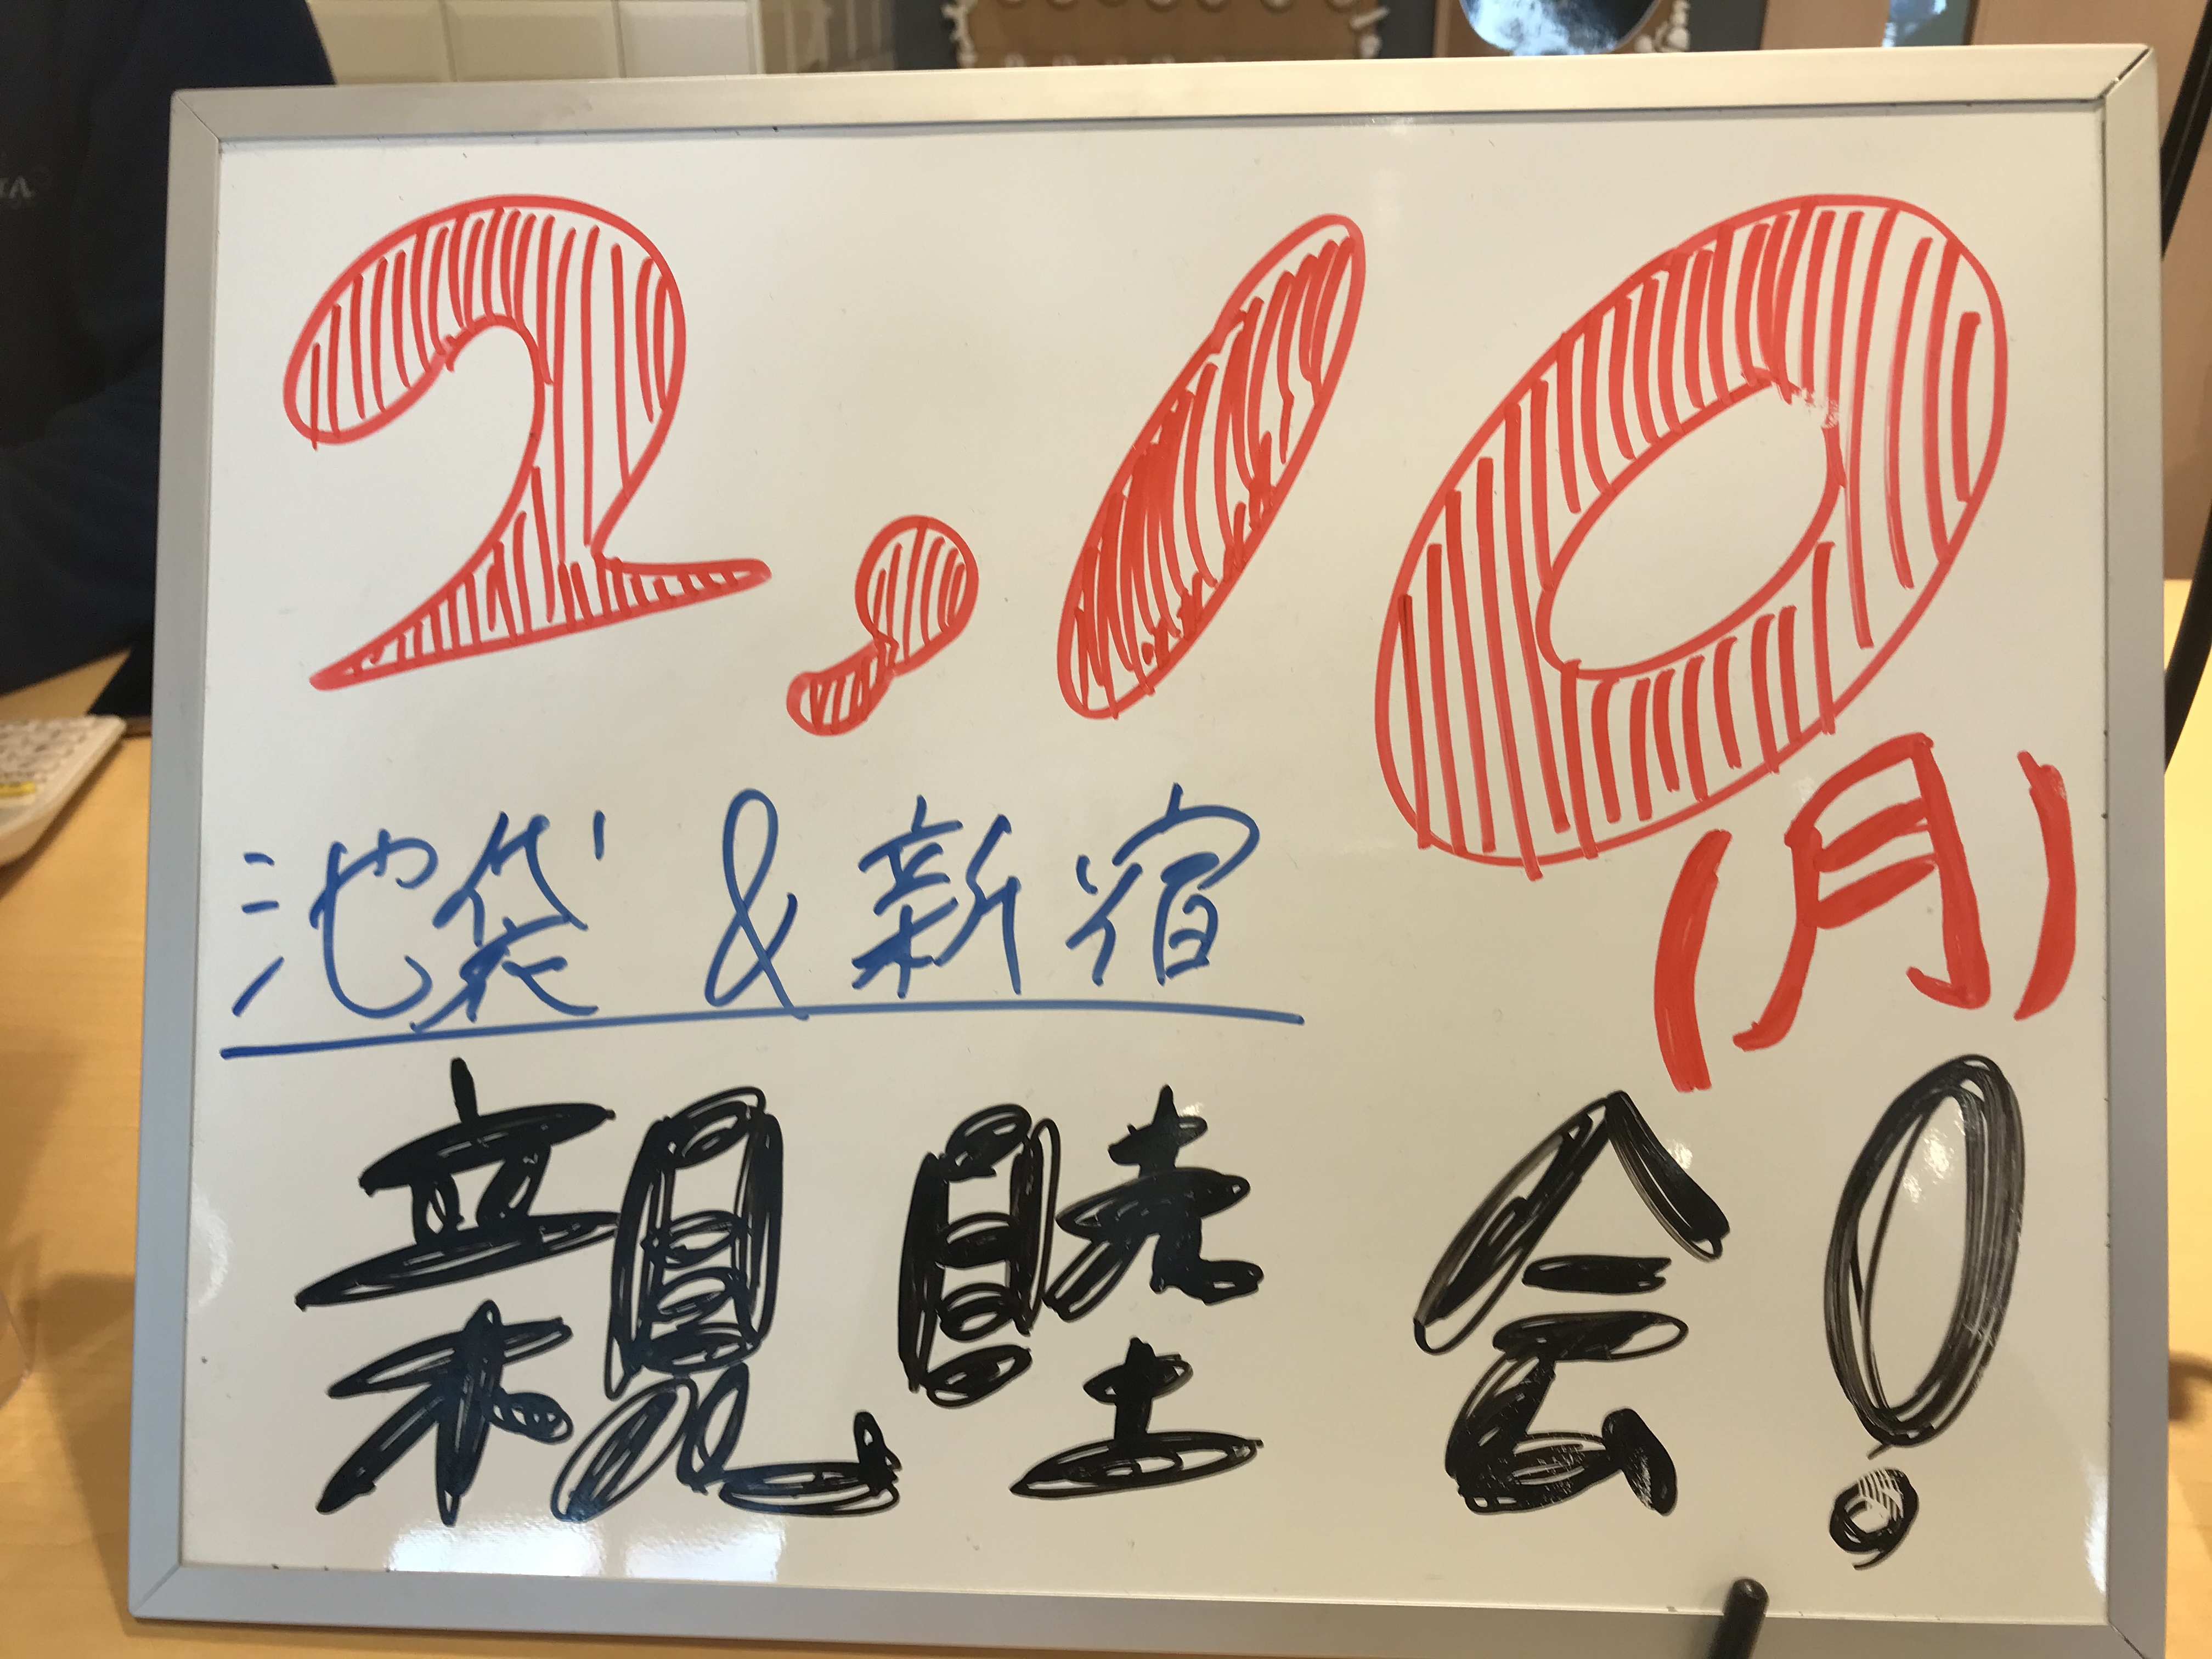 2.10
(月)
池袋&新宿
親睦会!